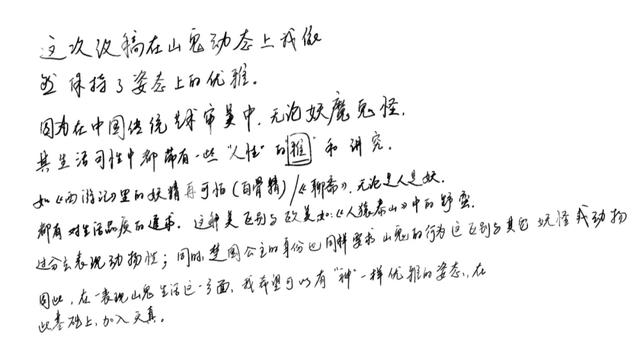 这次改稿在山鬼动态上我依
然保持了姿态上的优雅。
因为在中国传统艺术审美中，无论妖魔鬼怪，
其生活习性中都带有一些“人性”的“雅”和讲究。
如《西游记》里的妖精再可怕（白骨精）/《聊斋》，无论是人是妖，
都有对生活品质的追求。这种美区别与欧美如：《人猿泰山》中的野蛮
过分去表现动物性；同时，楚国公主的身份也同样要求山鬼的行为区别与其它妖怪或动物
因此，在表现山鬼生活这一方面，我希望可以有“神”一样优雅的姿态，在
此基础上，加入天真。